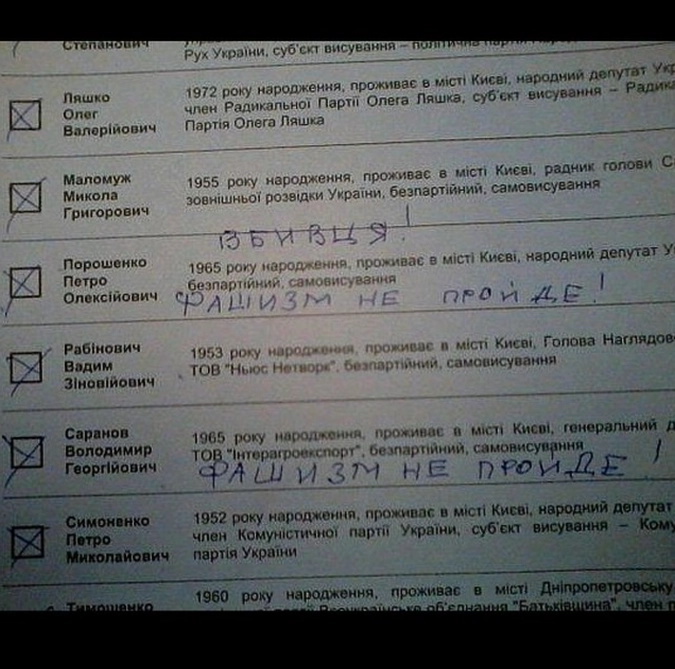 Степанович
Рух України, суб'єкт висування – політична партія
Ляшко
Олег
Валерійович
1972 року народження, проживає в місті Києві, народний депутат
член Радикальної Партії Олега Ляшка, суб'єкт висування –
Партія Олега Ляшка
Маломуж
Микола
Григорович
1955 року народження, проживає в місті Києві, радник голови
зовнішньої розвідки України, безпартійний, самовисування
ВБИВЦЯ!
Порошенко
Петро
Олексійович
1965 року народження, проживає в місті Києві, народний депутат
безпартійний, самовисування
ФАШИЗМ НЕ ПРОЙДЕ!
Рабінович
Вадим
Зіновійович
1953 року народження, проживає в місті Києві, Голова
ТОВ "Ньюс Нетворк", безпартійний, самовисування
Саранов
Володимир
Георгійович
1965 року народження, проживає в місті Києві, генеральний
ТОВ "Інтерагроекспорт", безпартійний, самовисування
ФАШИЗМ НЕ ПРОЙДЕ!
Симоненко
Петро
Миколайович
1952 року народження, проживає в місті Києві, народний депутат
член Комуністичної партії України, суб'єкт висування –
партія України
Тимошенко
1960 року народження, проживає в місті Дніпропетровську
Всеукраїнське об'єднання "Батьківщина", член